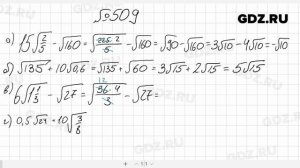 GDZ.RU
№509
а) 15√(2/5) - √160 = √(225·2/5) - √160 = √90 - √160 = 3√10 - 4√10 = -√10
б) √135 + 10√0,6 = √135 + √60 = 3√15 + 2√15 = 5√15
в) 6√(1 1/3) - √27 = √(36·4/3) - √27 =
12
г) 0,5√24 + 10√(3/8)
GDZ.RU